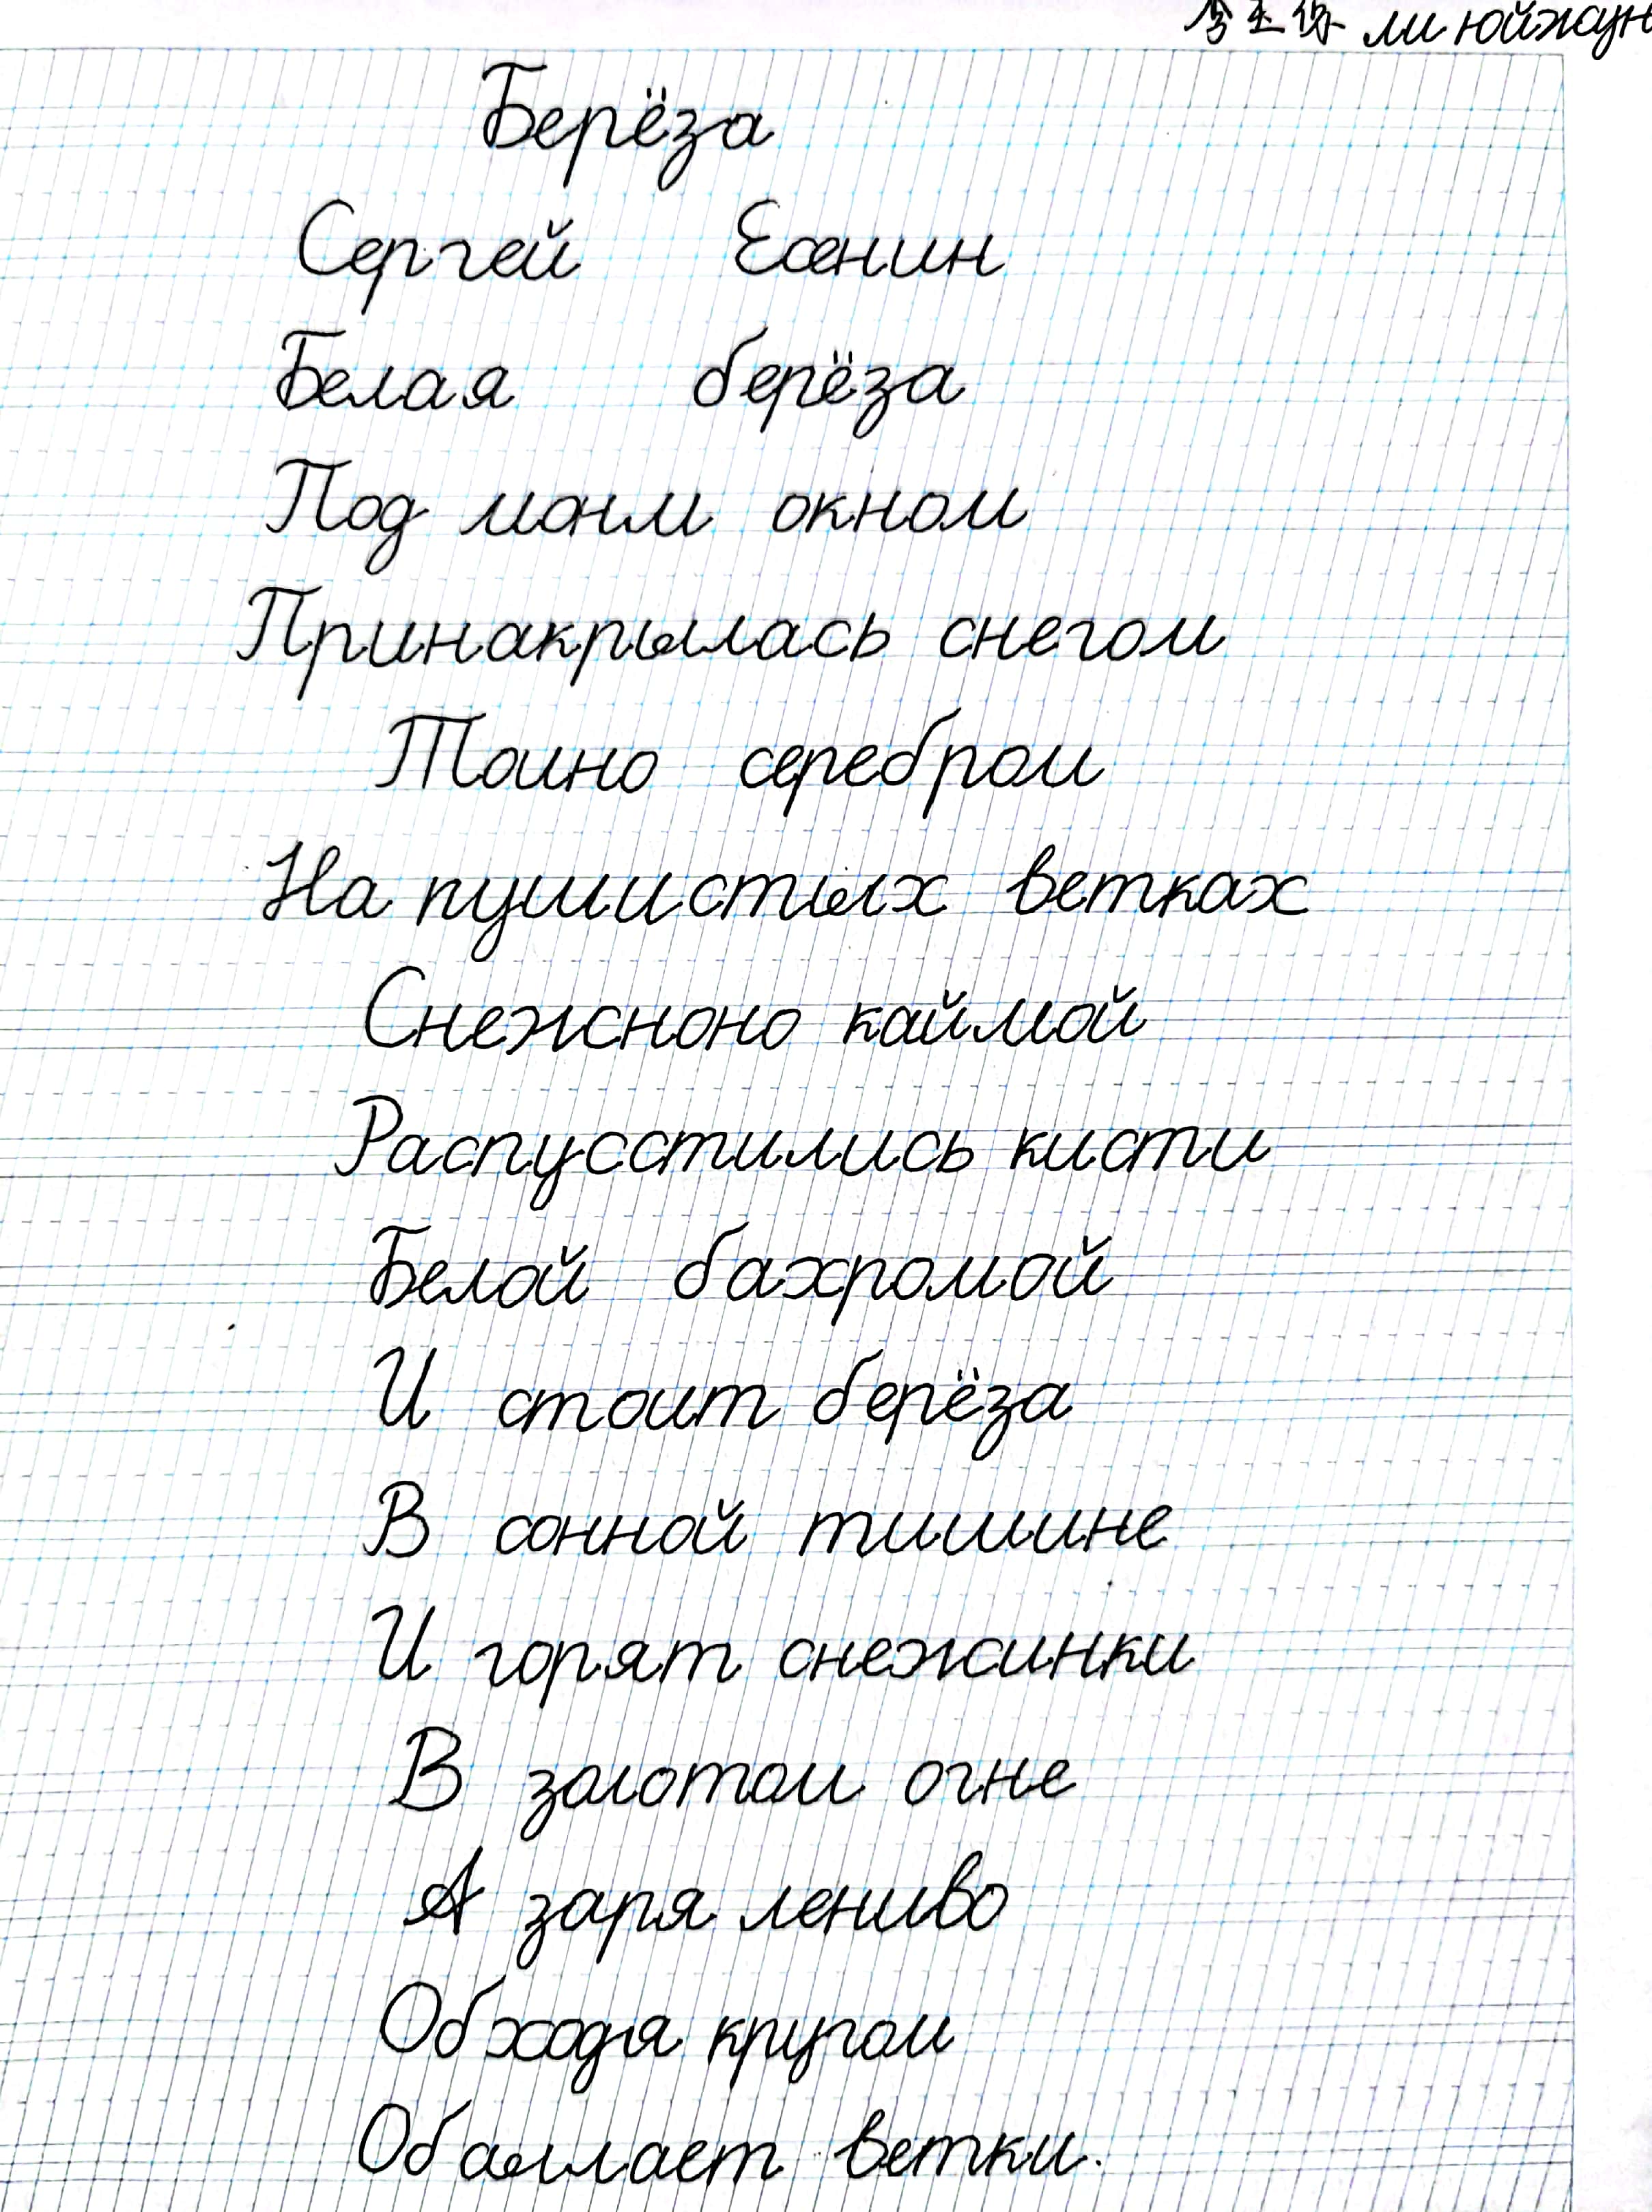 李玉保 ли юйжаун
Берёза
Сергей Есенин
Белая берёза
Под моим окном
Принакрылась снегом
Тоино серебром
На пушистых ветках
Снежсноно каймой
Распусстились кисти
Белой бахромой
И стоит берёза
В сонной тишине
И горят снежинки
В золотом огне
А заря лениво
Обходя кругом
Обаллает ветки.